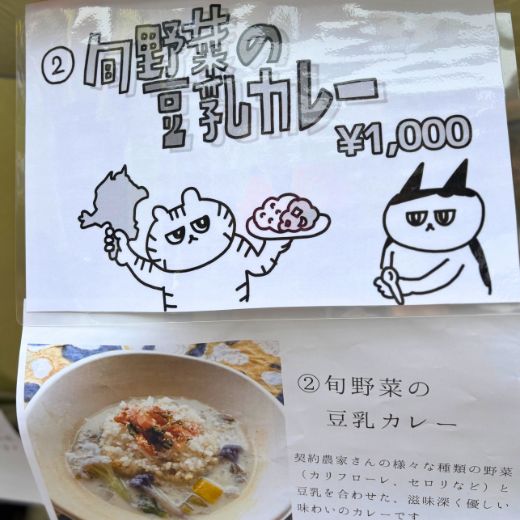 ② 旬野菜の
豆乳カレー
¥1,000
②旬野菜の
豆乳カレー
契約農家さんの様々な種類の野菜
(カリフローレ、セロリなど)と
豆乳を合わせた、滋味深く優しい
味わいのカレーです